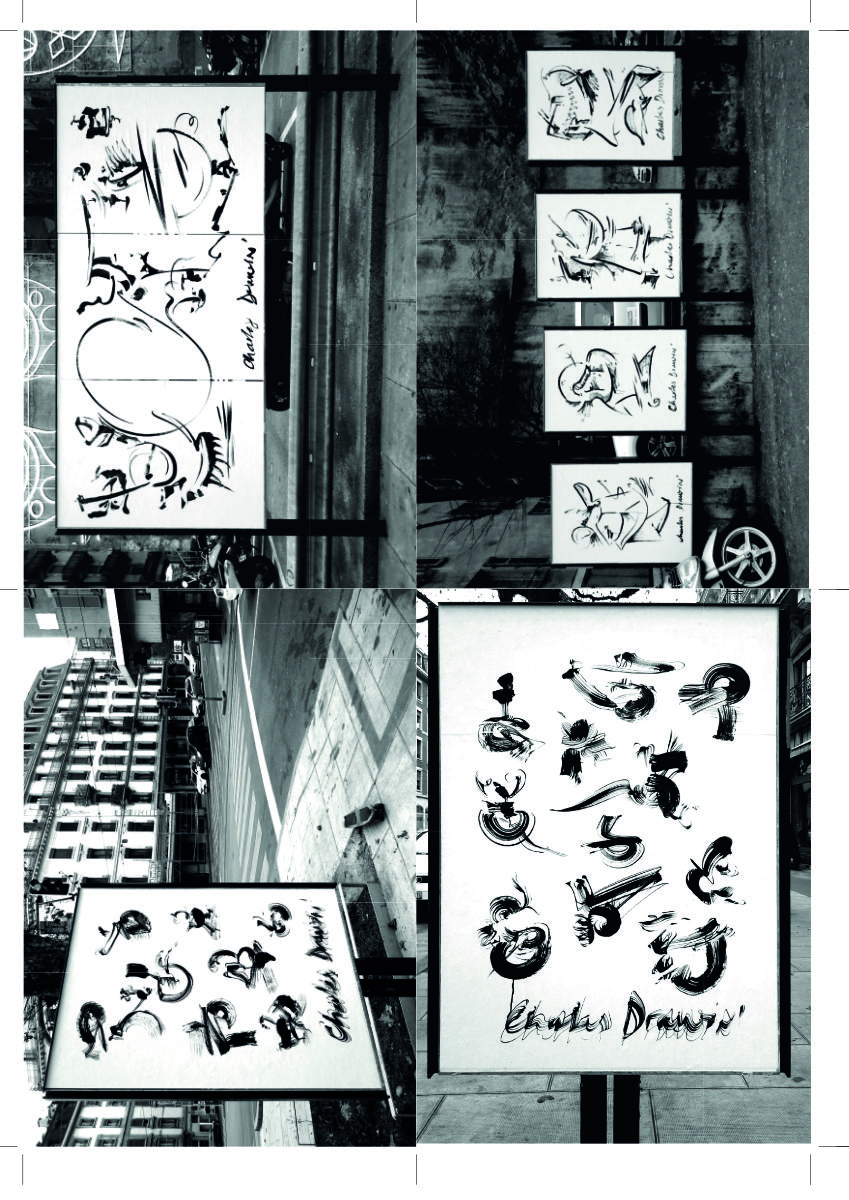 Charles Drawin'
Charles Drawin'
Charles Drawin'
Charles Drawin'
Charles Drawin'
Charles Drawin'
Charles Drawin'